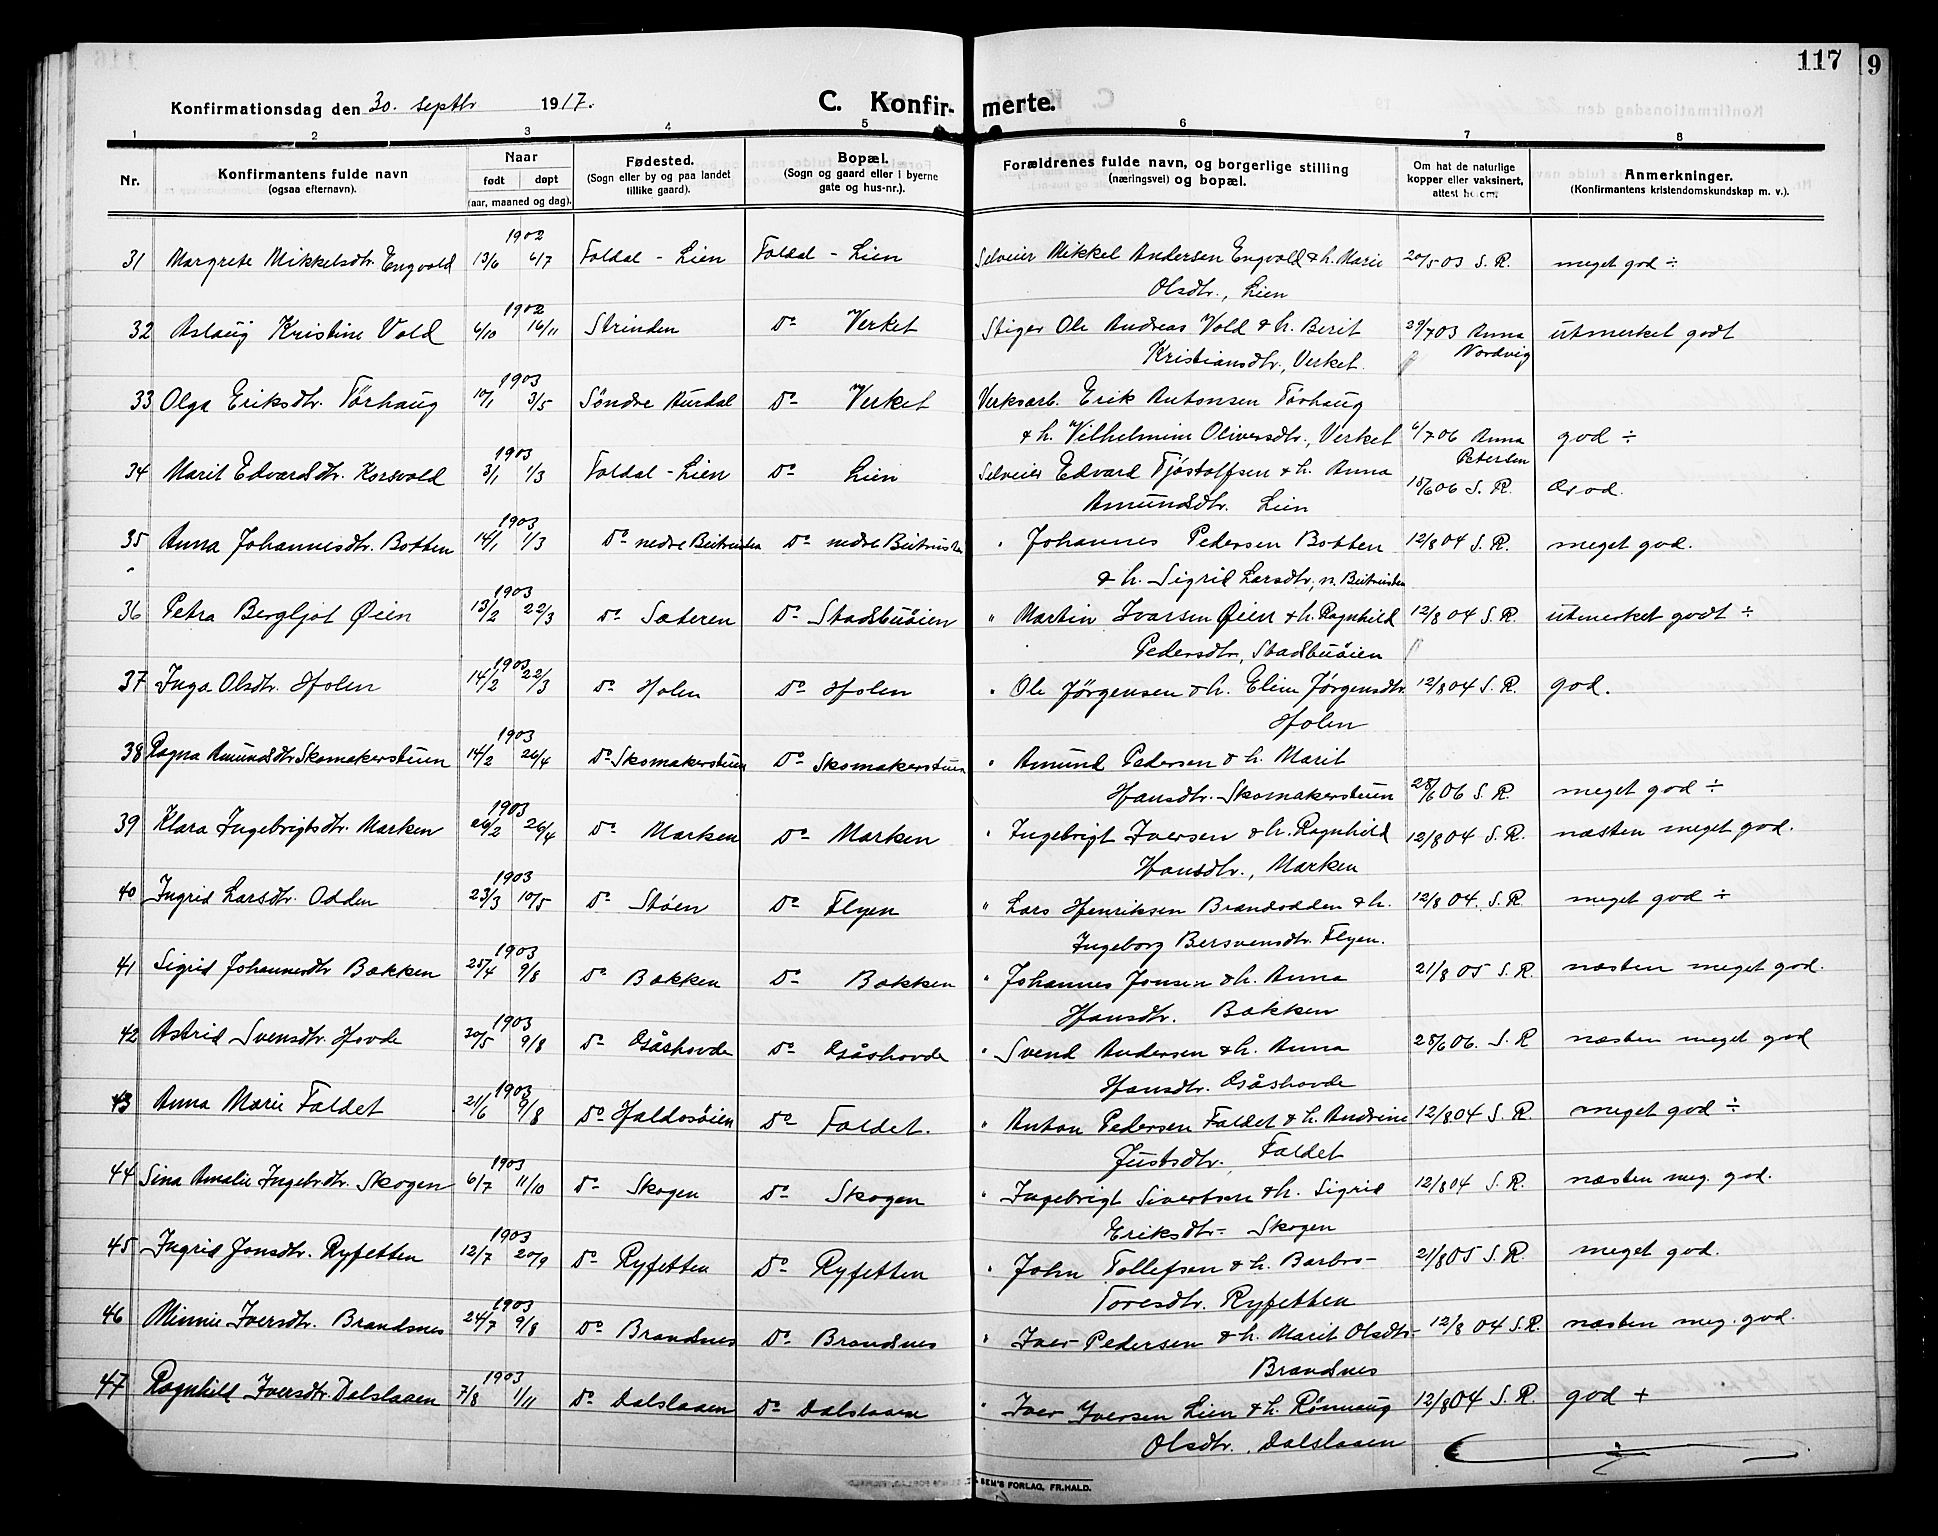 117
9
Konfirmationsdag den 30. septbr 1917.
C. Konfir- merte.
1 2 3 4 5 6 7 8
Nr.
Konfirmantens fulde navn
(ogsaa efternavn).
Naar
født døpt
(aar, maaned og dag).
Fødested.
(Sogn eller by og paa landet
tillike gaard).
Bopæl.
(Sogn og gaard eller i byerne
gate og hus-nr.).
Forældrenes fulde navn, og borgerlige stilling
(næringsvei) og bopæl.
Om hat de naturlige
kopper eller vaksinert,
attest herom.
Anmerkninger.
(Konfirmantens kristendomskundskap m. v.).
1902
31 Margrete Mikkelsdtr. Engvold 13/6 6/7 Foldal - Lien Foldal - Lien Selveier Mikkel Andersen Engvold & h. Marie 20/5 03 S. R. meget god ÷
Olsdtr., Lien
1902
32 Aslaug Kristine Vold 6/10 16/11 Strinden Do Verket Stiger Ole Andreas Vold & h. Berit 29/7 03 Anna utmerket godt
Kristiansdtr., Verket. Nordvig
1903
33 Olga Eriksdtr. Tørhaug 10/1 3/5 Søndre Aurdal Do Verket Verksarb. Erik Antonsen Tørhaug
& h. Vilhelmine Oliversdtr., Verket 6/7 06 Anna god ÷
Petersen
1903
34 Marit Edvardsdtr. Korsvold 3/1 1/3 Foldal - Lien Do Lien Selveier Edvard Tjøstolfsen & h. Anna
Amundsdtr. Lien 15/6 06 S. R.
1903
35 Anna Johannesdtr. Botten 14/1 1/3 Do nedre Do nedre " Johannes Pedersen Botten 12/8 04 S. R. meget god.
& h. Sigrid Larsdtr., n.
1903
36 Petra Bergljot Øien 13/2 22/3 Do Sæteren Do Stadsbuøien " Martin Ivarsen Øien & h. Ragnhild 12/8 04 S. R. utmerket godt ÷
Pedersdtr., Stadsbuøien
1903
37 Inga Olsdtr. Holen 14/2 22/3 Do Holen Do Holen " Ole Jørgensen & h. Eline Jørgensdtr. 12/8 04 S. R. god.
Holen
1903
38 Ragna Amundsdtr Skomakerstuen 14/2 26/4 Do Skomakerstuen Do Skomakerstuen " Amund Pedersen & h. Marit
Hansdtr. Skomakerstuen 28/6 06 S. R. meget god ÷
1903
39 Klara Ingebrigtsdtr. Marken 26/2 26/4 Do Marken Do Marken " Ingebrigt Iversen & h. Ragnhild 12/8 04 S. R. næsten meget god.
Hansdtr., Marken
1903
40 Ingrid Larsdtr. Odden 23/3 10/5 Do Støen Do Flyen " Lars Henriksen Brandodden & h. 12/8 04. S. R. meget god ÷
Ingeborg Bersvensdtr. Flyen.
1903
41 Sigrid Johannesdtr Bakken 25/4 9/8 Do Bakken Do Bakken " Johannes Jonsen & h. Anna 21/8 05 S. R. næsten meget god.
Hansdtr. Bakken
1903
42 Astrid Svensdtr. Hovde 20/5 9/8 Do Gåshovde Do Gåshovde " Svend Andersen & h. Anna 28/6 06. S. R næsten meget god
Hansdtr. Gåshovde
1903
43 Anna Marie Faldet 21/6 9/8 Do Haldosøien Do Faldet. " Anton Pedersen Faldet & h. Andrine 12/8 04 S. R. meget god ÷
Justsdtr., Faldet
1903
44 Sina Amalie Ingebrdtr. Skogen 6/7 11/10 Do Skogen Do Skogen " Ingebrigt Sivertsen & h. Sigrid 12/8 04 S. R. næsten meg. god.
Eriksdtr. Skogen
1903
45 Ingrid Jonsdtr. Ryfetten 12/7 20/9 Do Ryfetten Do Ryfetten " John Tollefsen & h. Barbro 21/8 05 S. R. meget god.
Toresdtr. Ryfetten
1903
46 Minnie Iversdtr. Brandsnes 24/7 9/8 Do Brandsnes Do Brandsnes " Iver Pedersen & h. Marit Olsdtr 12/8 04 S. R. næsten meg. god.
Brandsnes
1903
47 Ragnhild Iversdtr. Dalslaaen 7/8 1/11 Do Dalslaaen Do Dalslaaen " Iver Iversen Lien & h. Rønnaug 12/8 04 S. R. god +
Olsdtr. Dalslaaen
SEM'S FORLAG, FR.HALD.